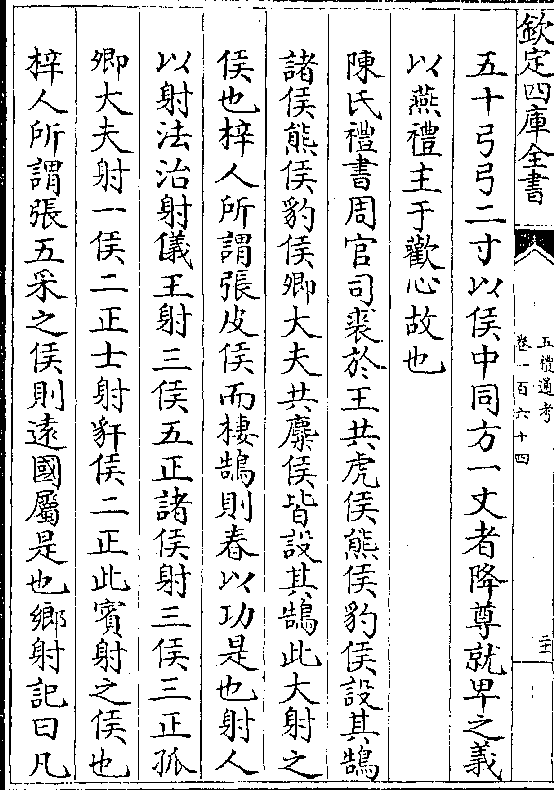 欽定四庫全書
五禮通考
卷一百六十四
二十
五十弓弓二寸以侯中同方一丈者降尊就卑之義
以燕禮主于歡心故也
陳氏禮書周官司裘於王共虎侯熊侯豹侯設其鵠
諸侯熊侯豹侯卿大夫共麋侯皆設其鵠此大射之
侯也梓人所謂張皮侯而棲鵠則春以功是也射人
以射法治射儀王射三侯五正諸侯射三侯三正孤
卿大夫射一侯二正士射豻侯二正此賓射之侯也
梓人所謂張五采之侯則遠國屬是也鄉射記曰凡